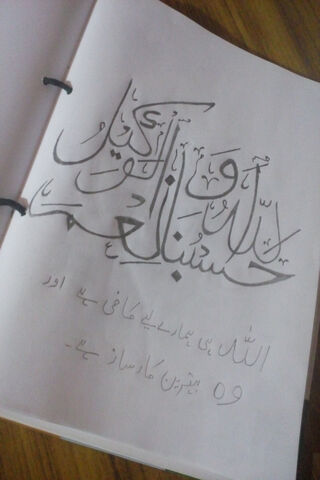 حسبنا الله و نعم الوكيل
اللہ ہی ہمارے لیے کافی ہے اور
وہ بہترین کارساز ہے۔